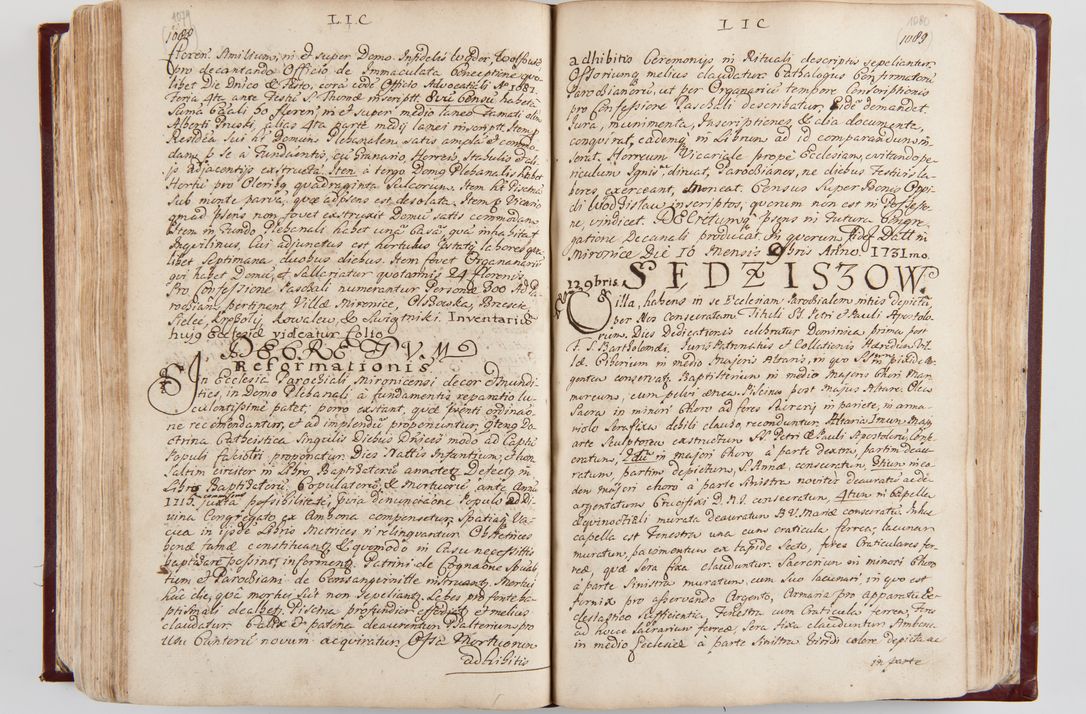 1079
1088
LIC
floren. Similium, in et super Domo Infidelis
pro decantando Officio de Immaculata Conceptione quo-
libet Die Dnico & Festo, corã eode Officio Advocatiali Aº 1681.
Feria 4ta ante Festũ S. Thomæ inscriptt.
Alberti Pruski, alias 4ta parte medij lanei inscript. Item p
Residea sui et Domum Plebanalem satis amplã et commo-
dam p se à Fundamentis, cũ Granario, Horreis, Stabulis
js adjacentijs exstructã. Item à tergo Domg Plebanalis habet
Hortũ pro Oleribg quadraginta Sulcorum. Item hæ Piscinã
sub monte parvã, quæ adpsens est desolata. Item p Vicario
qm ad psens non fovet exstruxit Domũ satis commodam
Item in Fundo Plebanali habet unã Casã, quã inhabitat
Inquilinus, cui adjunctus est hortulus
libet Septimana duobus diebus. Item fovet Organariũ
qui habet Domũ, et Sallariatur quotannis 24 florenis
Pro Confessione Paschali numerantur Personæ 800 Ad Pa-
rodhiam pertinent Villæ Mironice, Olszowska, Brzescie,
Sielec, Krpboly, Kowalew, & Swigtniki. Inventariũ
hujg Ecclesiæ videatur folio
DECRETVM
Reformationis
In Ecclesia Parochiali Mironicensi decor & mundi-
ties, in Domo Plebanali à fundamentis reparatio lu-
culentissime patet, porro exstant, quæ pventi ordinao-
ne recomendantur, et ad implendũ proponuntur,
ctrina Catheistica Singulis Diebus Dnicis modo ad Captũ
Populi facióri proponatur. Dies Nattis Infantium, et
saltim circiter in Libro Baptizatorũ annotetg Defectg in
Librg Baptizatorũ, Copulatorũ & Mortuorũ ante Annũ
1715. juxta possibilitatē, pvia denunciaone Populo ad Di-
vina Congregato ex Ambona compensetur. Spatia Va-
cua in ijsdē Libris Metrices ni relinquantur. Obstetrices
benæ famæ constituantg & quomodo in Casu necessitatis
baptizare possint, informentg Patrini de Cognaõne Spirit
tum et Parochiani de Consangvinitte instruantg. Mortui
hac die, quã mortui sũt non sepeliantg. Labes
ptismali dealbetg. Piscina profundior effodiatg et melius
claudatur. Calix et patena deaurentur. Psalterium pro
usu Cantorũ novum acquiratur. Ossa Mortuorum
adhibitis

1080
1089
LIC
adhibitis Ceremonijs in Rituali descriptis sepeliantur.
Ossorium melius claudatur. Cathalogus Confirmatorũ
Parochianorũ, ut per Organariũ tempore Conscriptionis
pro Confessione Paschali describatur, Eidē demandet
Jura, munimenta, Inscriptiones & alia documenta,
conquirat, eademg in Librum ad id comparandum in-
serat. Horreum Vicariale prope Ecclesiam, evitando pe-
riculum Ignis dimat, Parochianos, ne diebus Festivis la-
bores exerceant, Moneat. Census super Bonis Oppi-
di Wodzislaw inscriptos, quorum non est in Possessio-
ne, vindicet. DECretumg psens in Futura Congre-
gatione Decanali producat. In quorum Fidē Datt in
Mironice Die 16 mensis 9bris Anno 1731mo.
SEDZISZOW.
13 9bris
Villa, habens in se Ecclesiam Parochialem intus depictã
per Nos consecratam Tituli SS. Petri et Pauli Apostolo-
rum. Dies Dedicationis celebratur Dominica prima post
F. S. Bartholomæi. Juris Patronatus et Collationis Hæredum Vil-
læ. Ciborium in medio Majoris Altaris, in quo SSmum in Pixide ar-
gentea conservatg. Baptisterium in medio Majoris Chori mar-
moreum, cum pelvi ænea. Piscina post Majus Altare. Olea
Sacra in minori Choro ad fores Sacrarij in pariete, in arma-
riolo Sera fixa debili clauso, reconduntur. Altaria Imum Majg
arte Sculptorea exstructum SS. Petri & Pauli Apostolorũ, Cons-
ecratum, 2dũ in majori Choro à parte dextra partim deau-
ratum, partim depictum, S. Annæ, consecratum, 3tium in ea-
dem Majori choro à parte Sinistra noviter deauratũ ac de-
argentatum Crucifixi D.N.I. consecratum, 4tum in Capella
æqvinoctiali murata deauratum B.V. Mariæ consecratũ in hac
capella est Fenestra una cum craticula ferrea, lacunar
muratum, pavimentum ex lapide Secto, fores Craticulares fer-
reæ, quæ sera fixa clauduntur. Sacrarium in minori Choro
à parte Sinistra muratum, cum suo lacunari, in quo est
fornix pro asservando Argento, Armaria pro apparatu Ec-
clesiastico sufficientia, Fenestra cum Craticula ferrea, Fores
ad hocce Sacrarium ferreæ, Sera fixa clauduntur Ambona
in medio Ecclesiæ à parte Sinistra Viridi colore depicta ac
in parte